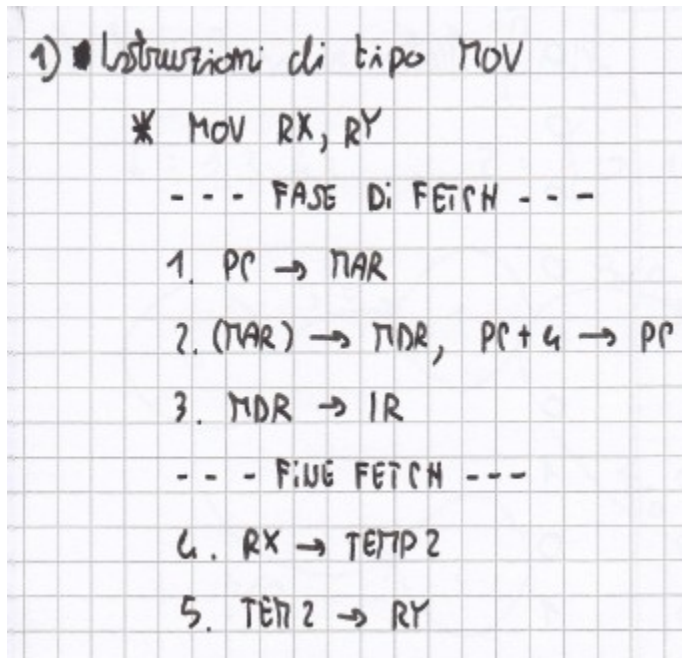 1) Istruzioni di tipo MOV
* MOV RX, RY
- - - FASE Di FETCH - - -
1. PC → MAR
2. (MAR) → MDR, PC + 4 → PC
3. MDR → IR
- - - FiNE FETCH - - -
4. RX → TEMP 2
5. TEM 2 → RY